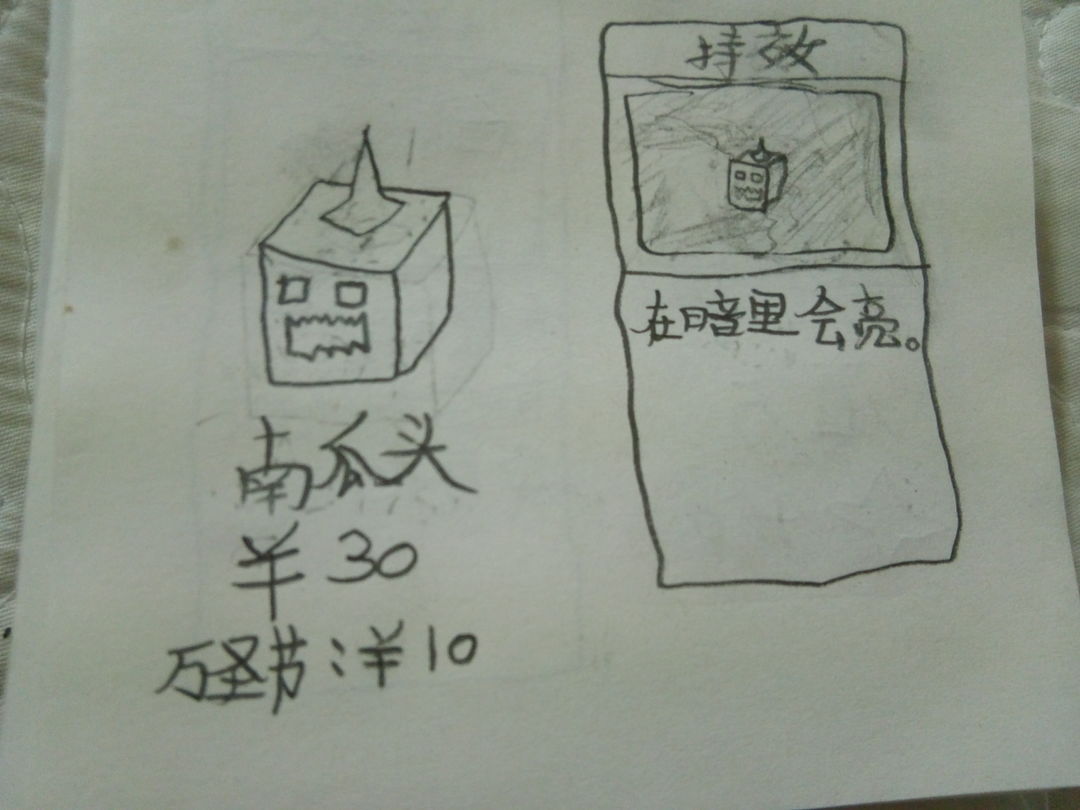 南瓜头
¥30
万圣节:¥10
特效
在暗里会亮。